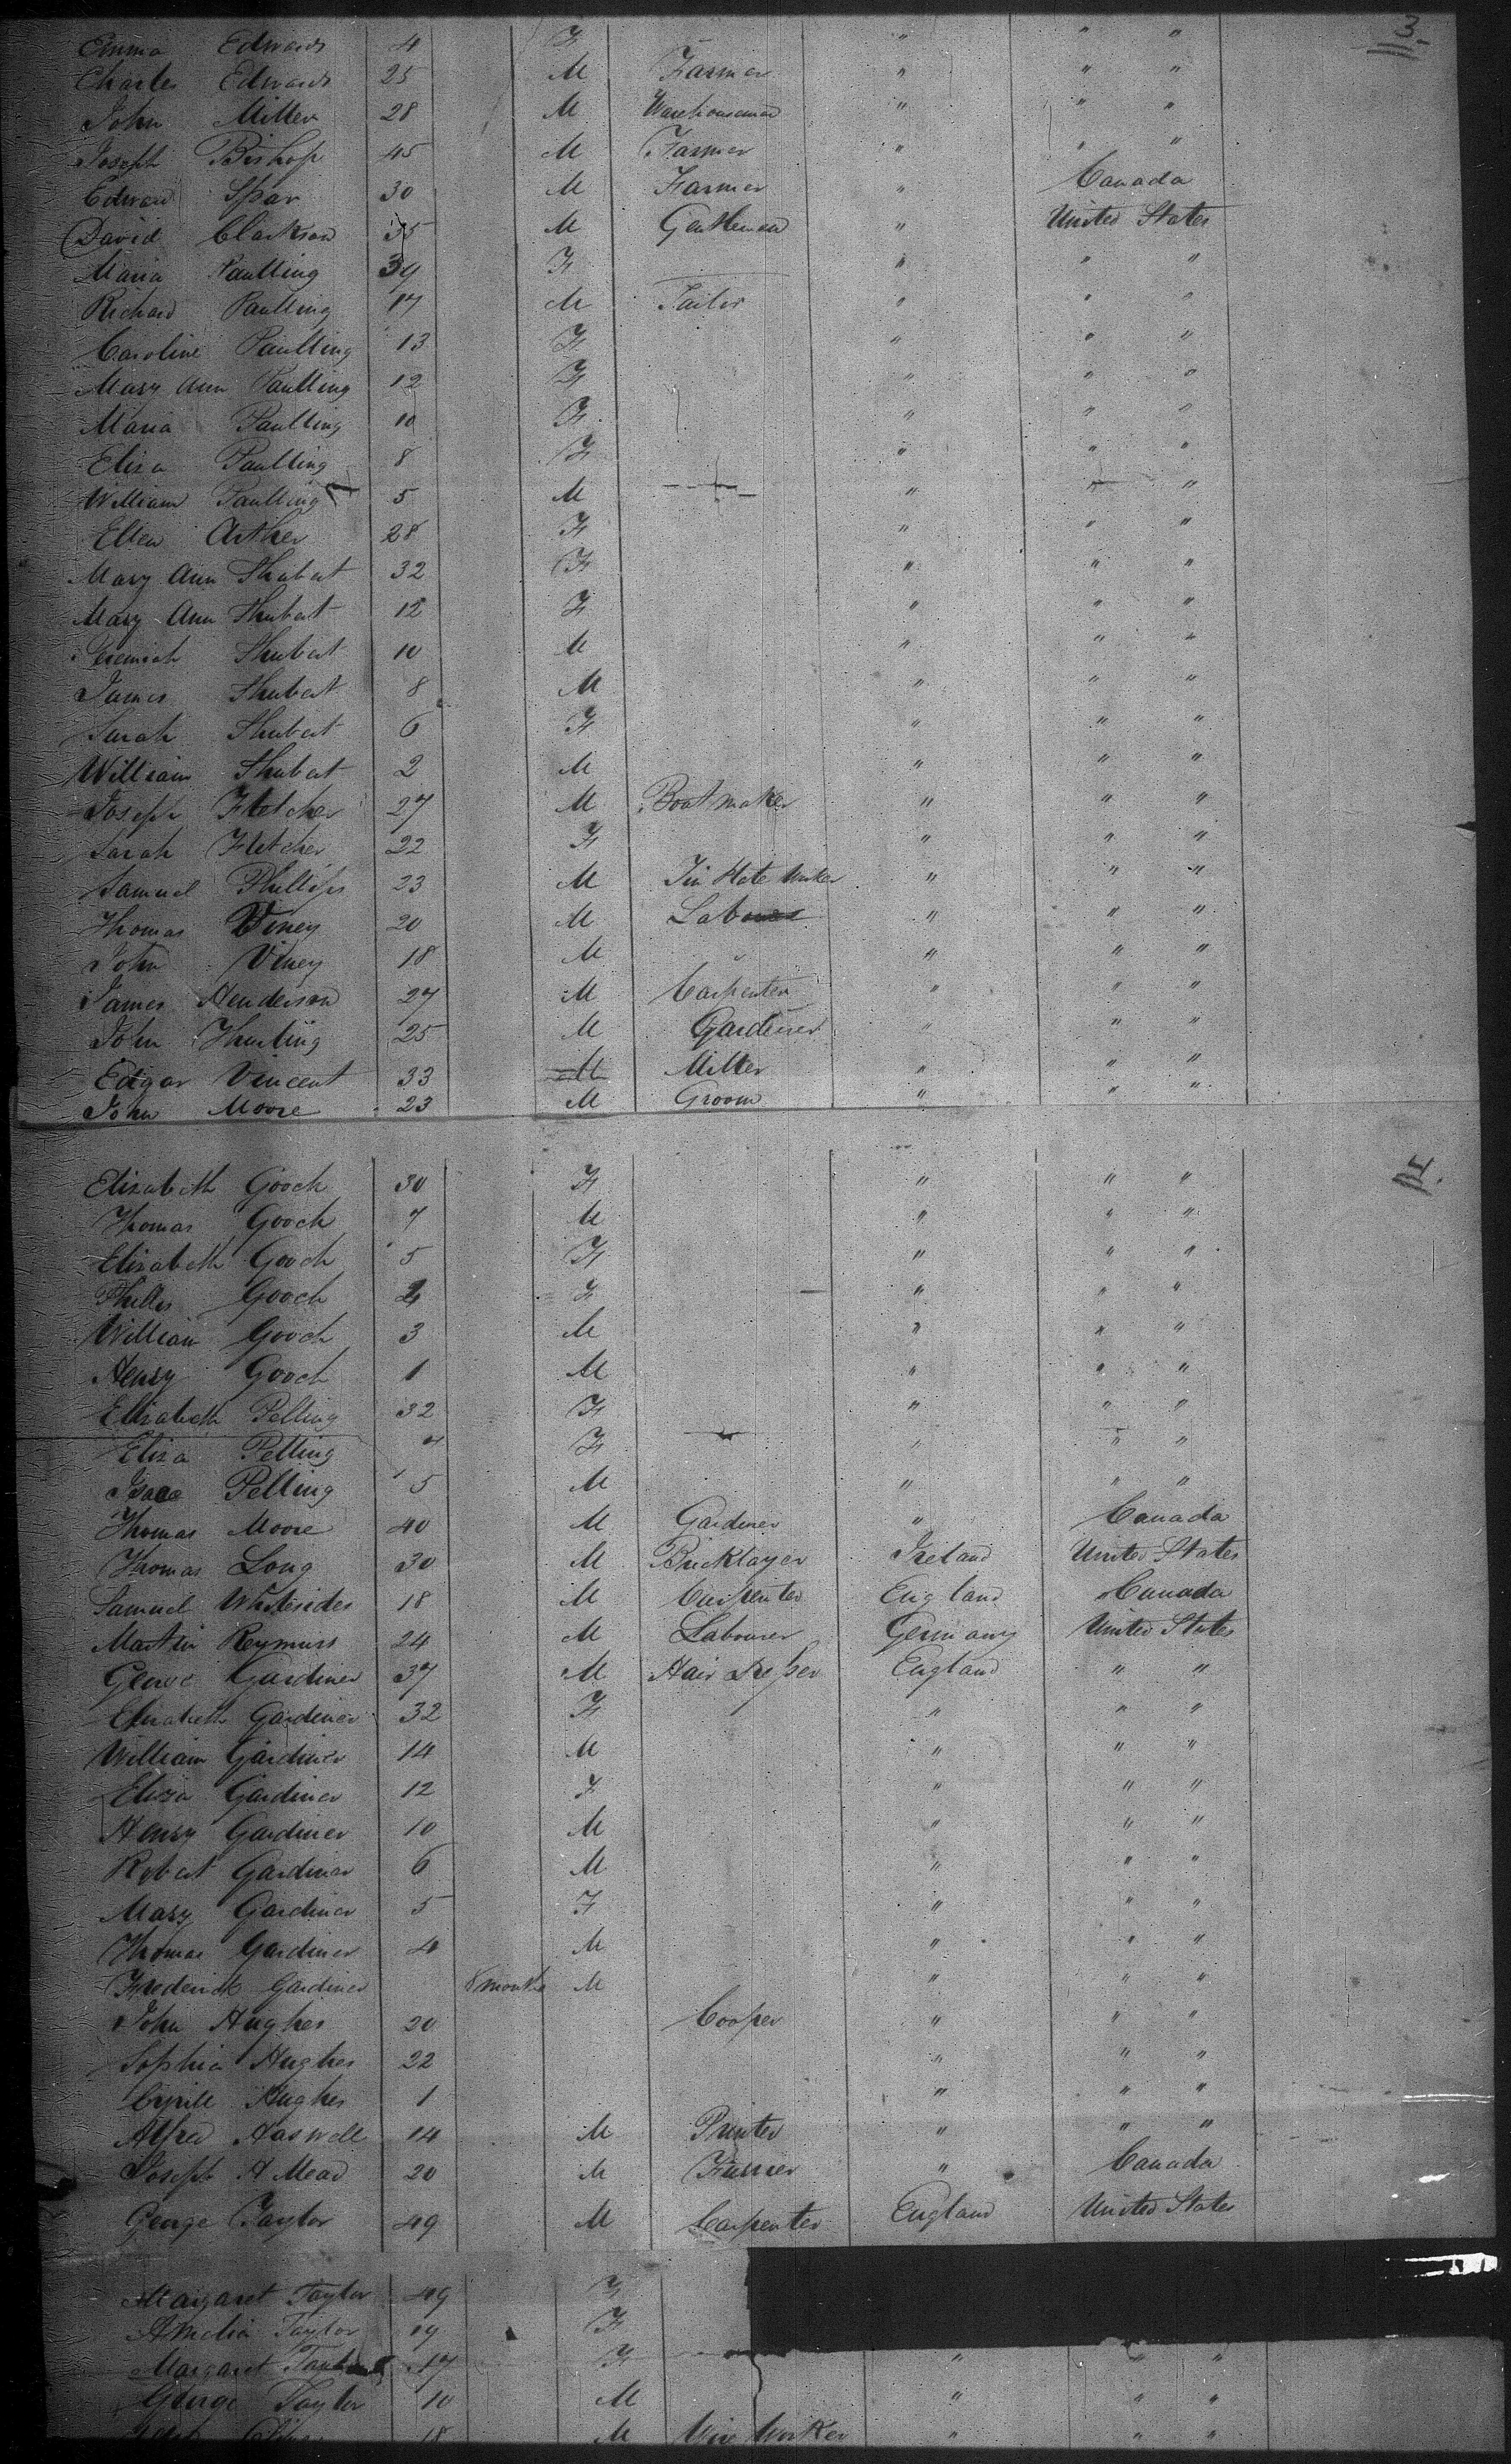 3.
Emma Edwards 4 F " " "
Charles Edwards 25 M Farmer " " "
John Miller 28 M Warehouseman " " "
Joseph Bishop 45 M Farmer " " "
Edward Spar 30 M Farmer " Canada
David Clarkson 35 M Gentleman " United States
Maria Paulling 39 F " " "
Richard Paulling 17 M Tailor " " "
Caroline Paulling 13 F " " "
Mary Ann Paulling 12 F " " "
Maria Paulling 10 F " " "
Eliza Paulling 8 F " " "
William Paulling 5 M " " "
Ellen Arther 28 F " " "
Mary Ann Shubert 32 F " " "
Mary Ann Shubert 12 F " " "
Jeremiah Shubert 10 M " " "
James Shubert 8 M " " "
Sarah Shubert 6 F " " "
William Shubert 2 M " " "
Joseph Fletcher 27 M Bootmaker " " "
Sarah Fletcher 22 F " " "
Samuel Phillips 23 M Tin Plate Worker " " "
Thomas Viney 20 M Labourer " " "
John Viney 18 M " " " "
James Henderson 27 M Carpenter " " "
John Thurling 25 M Gardener " " "
Edgar Vincent 33 M Miller " " "
John Moore 23 M Groom " " "
4.
Elizabeth Gooch 30 F " " "
Thomas Gooch 7 M " " "
Elizabeth Gooch 5 F " " "
Phillis Gooch 4 F " " "
William Gooch 3 M " " "
Henry Gooch 1 M " " "
Elizabeth Pelling 32 F " " "
Eliza Pelling 7 F " " "
Isaac Pelling 5 M " " "
Thomas Moore 40 M Gardiner " Canada
Thomas Long 30 M Bricklayer Ireland United States
Samuel Whitesides 18 M Carpenter England Canada
Martin Reymuss 24 M Labourer Germany United States
George Gardiner 37 M Hair Dresser England " "
Elizabeth Gardiner 32 F " " "
William Gardiner 14 M " " "
Eliza Gardiner 12 F " " "
Henry Gardiner 10 M " " "
Robert Gardiner 6 M " " "
Mary Gardiner 5 F " " "
Thomas Gardiner 4 M " " "
Frederick Gardiner 8 months M " " "
John Hughes 20 Cooper " " "
Sophia Hughes 22 " " "
Cyrill Hughes 1 " " "
Alfred Haswell 14 M Printer " " "
Joseph A Mead 20 M Farmer " Canada
George Taylor 49 M Carpenter England United States
Margaret Taylor 49 F
Amelia Taylor 19 F
Margaret Taylor 17 F " " "
George Taylor 10 M " " "
18 M Wire Worker " " "